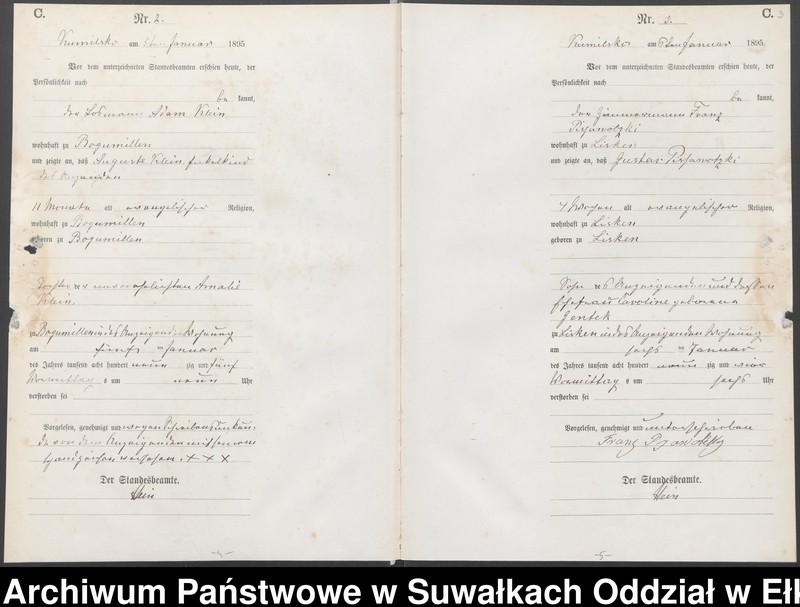 C.
Nr. 2.
Kumilsko am 5ten Januar 1895
Vor dem unterzeichneten Standesbeamten erschien heute, der
Persönlichkeit nach
be kannt,
der Losmann Adam Klein
wohnhaft zu Bogumillen
und zeigte an, daß Auguste Klein, Enkelkind
des Anzeigenden
11 Monate alt evangelischer Religion,
wohnhaft zu Bogumillen
geboren zu Bogumillen
Tochter der unverehelichten Amalie
Klein
zu Bogumillen in des Anzeigenden Wohnung
am fünf ten Januar
des Jahres tausend acht hundert neun zig und fünf
Vormittag s um neun Uhr
verstorben sei
Vorgelesen, genehmigt und wegen Schreibensunkun-
de von dem Anzeigenden mit seinem
Handzeichen versehen. + X X
Der Standesbeamte.
Klein
C. 3
Nr. 3.
Kumilsko am 6ten Januar 1895.
Vor dem unterzeichneten Standesbeamten erschien heute, der
Persönlichkeit nach
be kannt,
der Zimmermann Franz
wohnhaft zu Lisken
und zeigte an, daß Gustav
7 Wochen alt evangelischer Religion,
wohnhaft zu Lisken
geboren zu Lisken
Sohn des Anzeigenden und dessen
Ehefrau Caroline geborene
Jentek
zu Lisken in des Anzeigenden Wohnung
am sechs ten Januar
des Jahres tausend acht hundert neun zig und
Vormittag s um sechs Uhr
verstorben sei
Vorgelesen, genehmigt und unterschrieben
Franz
Der Standesbeamte.
Klein
Archiwum Państwowe w Suwałkach Oddział w Eł